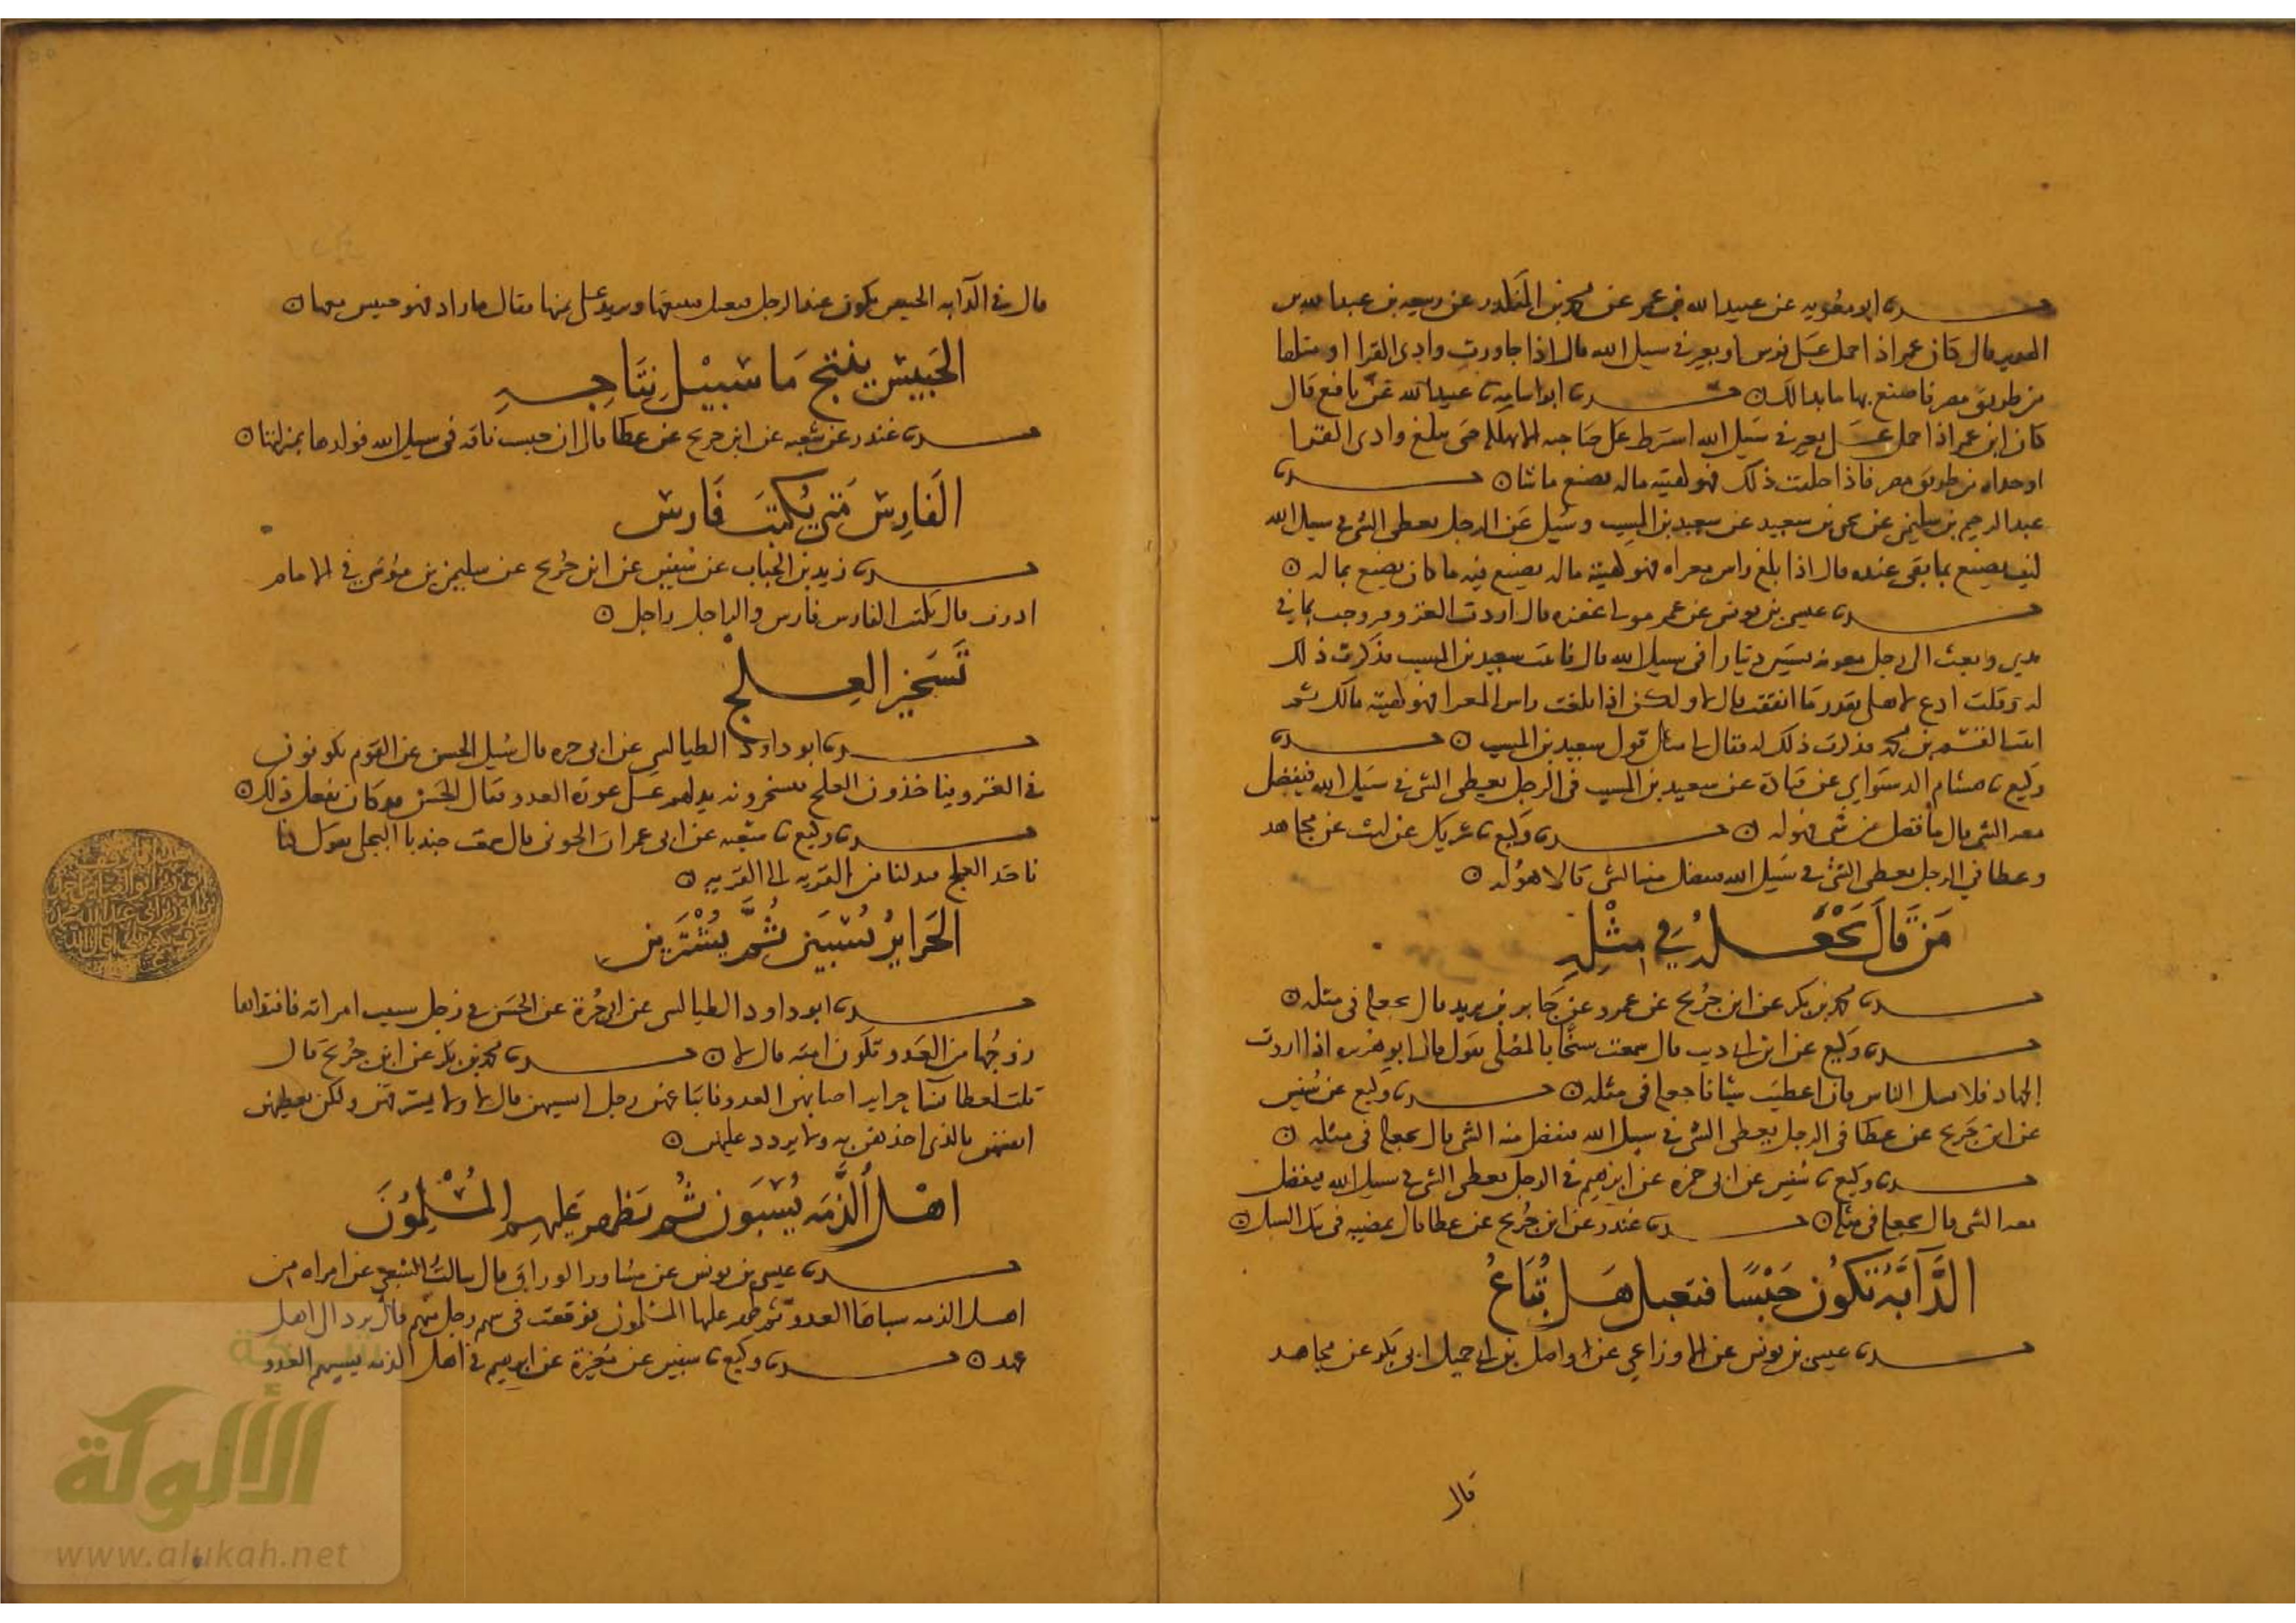 حدثنا ابو معويه عن عبيد الله بن عمر عن محمد بن المنكدر عن ربيعه بن عبد الله بن
الهدير قال كان عمر اذا حمل على فرس او بعير في سبيل الله قال اذا جاوزت وادي القرا او مثلها
من طريق مصر فاصنع بها ما بدا لك ۞ حدثنا ابو اسامه نا عبيد الله عن نافع قال
كان ابن عمر اذا حمل على بعير في سبيل الله اشترط على صاحبه الا يهلكه حتى يبلغ وادي القرا
او حذاه من طريق مصر فاذا خلفت ذلك فهو كهيئة ماله يصنع ما شا ۞ حدثنا
عبد الرحيم بن سليمن عن يحيى بن سعيد عن سعيد بن المسيب وسئل عن الرجل يعطى الشي في سبيل الله
كيف يصنع بما بقي عنده قال اذا بلغ راس مغزاه فهو كهيئة ماله يصنع فيه ما كان يصنع بماله ۞
حدثنا عيسى بن يونس عن عمر مولى غفره قال اردت الغزو وتجهزت بما في
يدي وبعث الي رجل معونه بستين دينارا في سبيل الله قال فاتيت سعيد بن المسيب فذكرت ذلك
له وقلت ادع لاهلي بقدر ما انفقت قال لا ولكن اذا بلغت راس المغزا فهو كهيئة مالك ثم
اتيت القسم بن محمد فذكرت ذلك له فقال لي مثل قول سعيد بن المسيب ۞ حدثنا
وكيع نا هشام الدستواي عن قتادة عن سعيد بن المسيب في الرجل يعطى الشي في سبيل الله فيفضل
معه الشي قال ما فضل من شي فهو له ۞ حدثنا وكيع نا شريك عن ليث عن مجاهد
وعطا في الرجل يعطى الشي في سبيل الله يفضل منه الشي قالا هو له ۞
من قال يجعله في مثله
حدثنا محمد بن بكر عن ابن جريح عن عمرو عن جابر بن يزيد قال يجعله في مثله ۞
حدثنا وكيع عن ابن ابي ذيب قال سمعت شيخا بالمصلى يقول قال ابو هريره اذا اردت
الجهاد فلا تسل الناس فان اعطيت شيئا فاجعله في مثله ۞ حدثنا وكيع عن سفين
عن ابن جريح عن عطا في الرجل يعطى الشي في سبيل الله يفضل منه الشي قال يجعله في مثله ۞
حدثنا وكيع نا سفين عن ابي حمزه عن ابرهيم في الرجل يعطى الشي في سبيل الله فيفضل
معه الشي قال يجعله في مثله ۞ حدثنا غندر عن ابن جريح عن عطا قال يمضيه في تلك السبيل ۞
الدابه تكون حبسا فتعتل هل تباع
حدثنا عيسى بن يونس عن الاوزاعي عن واصل بن ابي جميل ابي بكر عن مجاهد
قال
قال في الدابه الحبيس يكون عند الرجل فيبيعها ويزيد على ثمنها فقال ما زاد فهو حبيس معها ۞
الحبيس ينتج ما سبيل نتاجه
حدثنا غندر عن شعبه عن ابن جريح عن عطا قال ان حبست ناقه في سبيل الله فولدها بمنزلتها ۞
الفارس متى يكتب فارس
حدثنا زيد بن الحباب عن سفين عن ابن جريح عن سليمن بن موسى في الامام
ادرب قال يكتب الفارس فارس والراجل راجل ۞
تسخير العلج
حدثنا ابو داود الطيالسي عن ابي حره قال سئل الحسن عن القوم يكونون
في الغزو فياخذون العلج فيسخرونه يدلهم على عورة العدو فقال الحسن قد كان يفعل ذلك ۞
حدثنا وكيع نا شعبه عن ابي عمران الجوني قال سمعت جندبا البجلي يقول كنا
ناخذ العلج فيدلنا من القريه الى القريه ۞
الحراير يسبين ثم يشترين
حدثنا ابو داود الطيالسي عن ابي حرة عن الحسن في رجل سبيت امراته فافتداها
زوجها من العدو تكون امته قال لا ۞ حدثنا محمد بن بكر عن ابن جريح قال
قلت لعطا نسا حراير اصابهن العدو فابتاعهن رجل ايصيبهن قال لا ولا يسترقهن ولكن يعطيهن
انفسهن بالذي اخذهن به ولا يردد عليهن ۞
اهل الذمه يسبون ثم يظهر عليهم المسلمون
حدثنا عيسى بن يونس عن مساور الوراق قال سالت الشعبي عن امراه من
اهل الذمه سباها العدو ثم ظهر عليها المسلمون فوقعت في سهم رجل منهم قال ترد الى اهل
عهد ۞ حدثنا وكيع نا سفين عن مغيرة عن ابرهيم في اهل الذمه يسبيهم العدو
شبكة
الألوكة
www.alukah.net